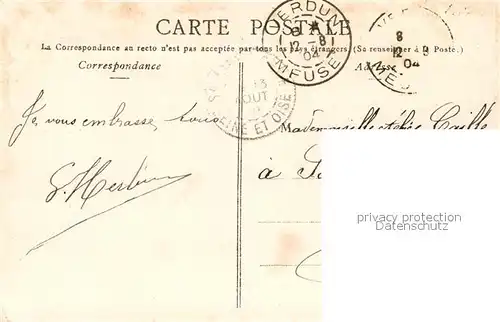 CARTE POSTALE
La Correspondance au recto n'est pas acceptée par tous les pays étrangers. (Se renseigner à la Poste.)
Correspondance
Adresse
VERDUN
8
12 - 8
04
MEUSE
8
12 8
04
13
AOUT
SEINE ET OISE
Je vous embrasse tous
Mademoiselle Caille
à
privacy protection
Datenschutz